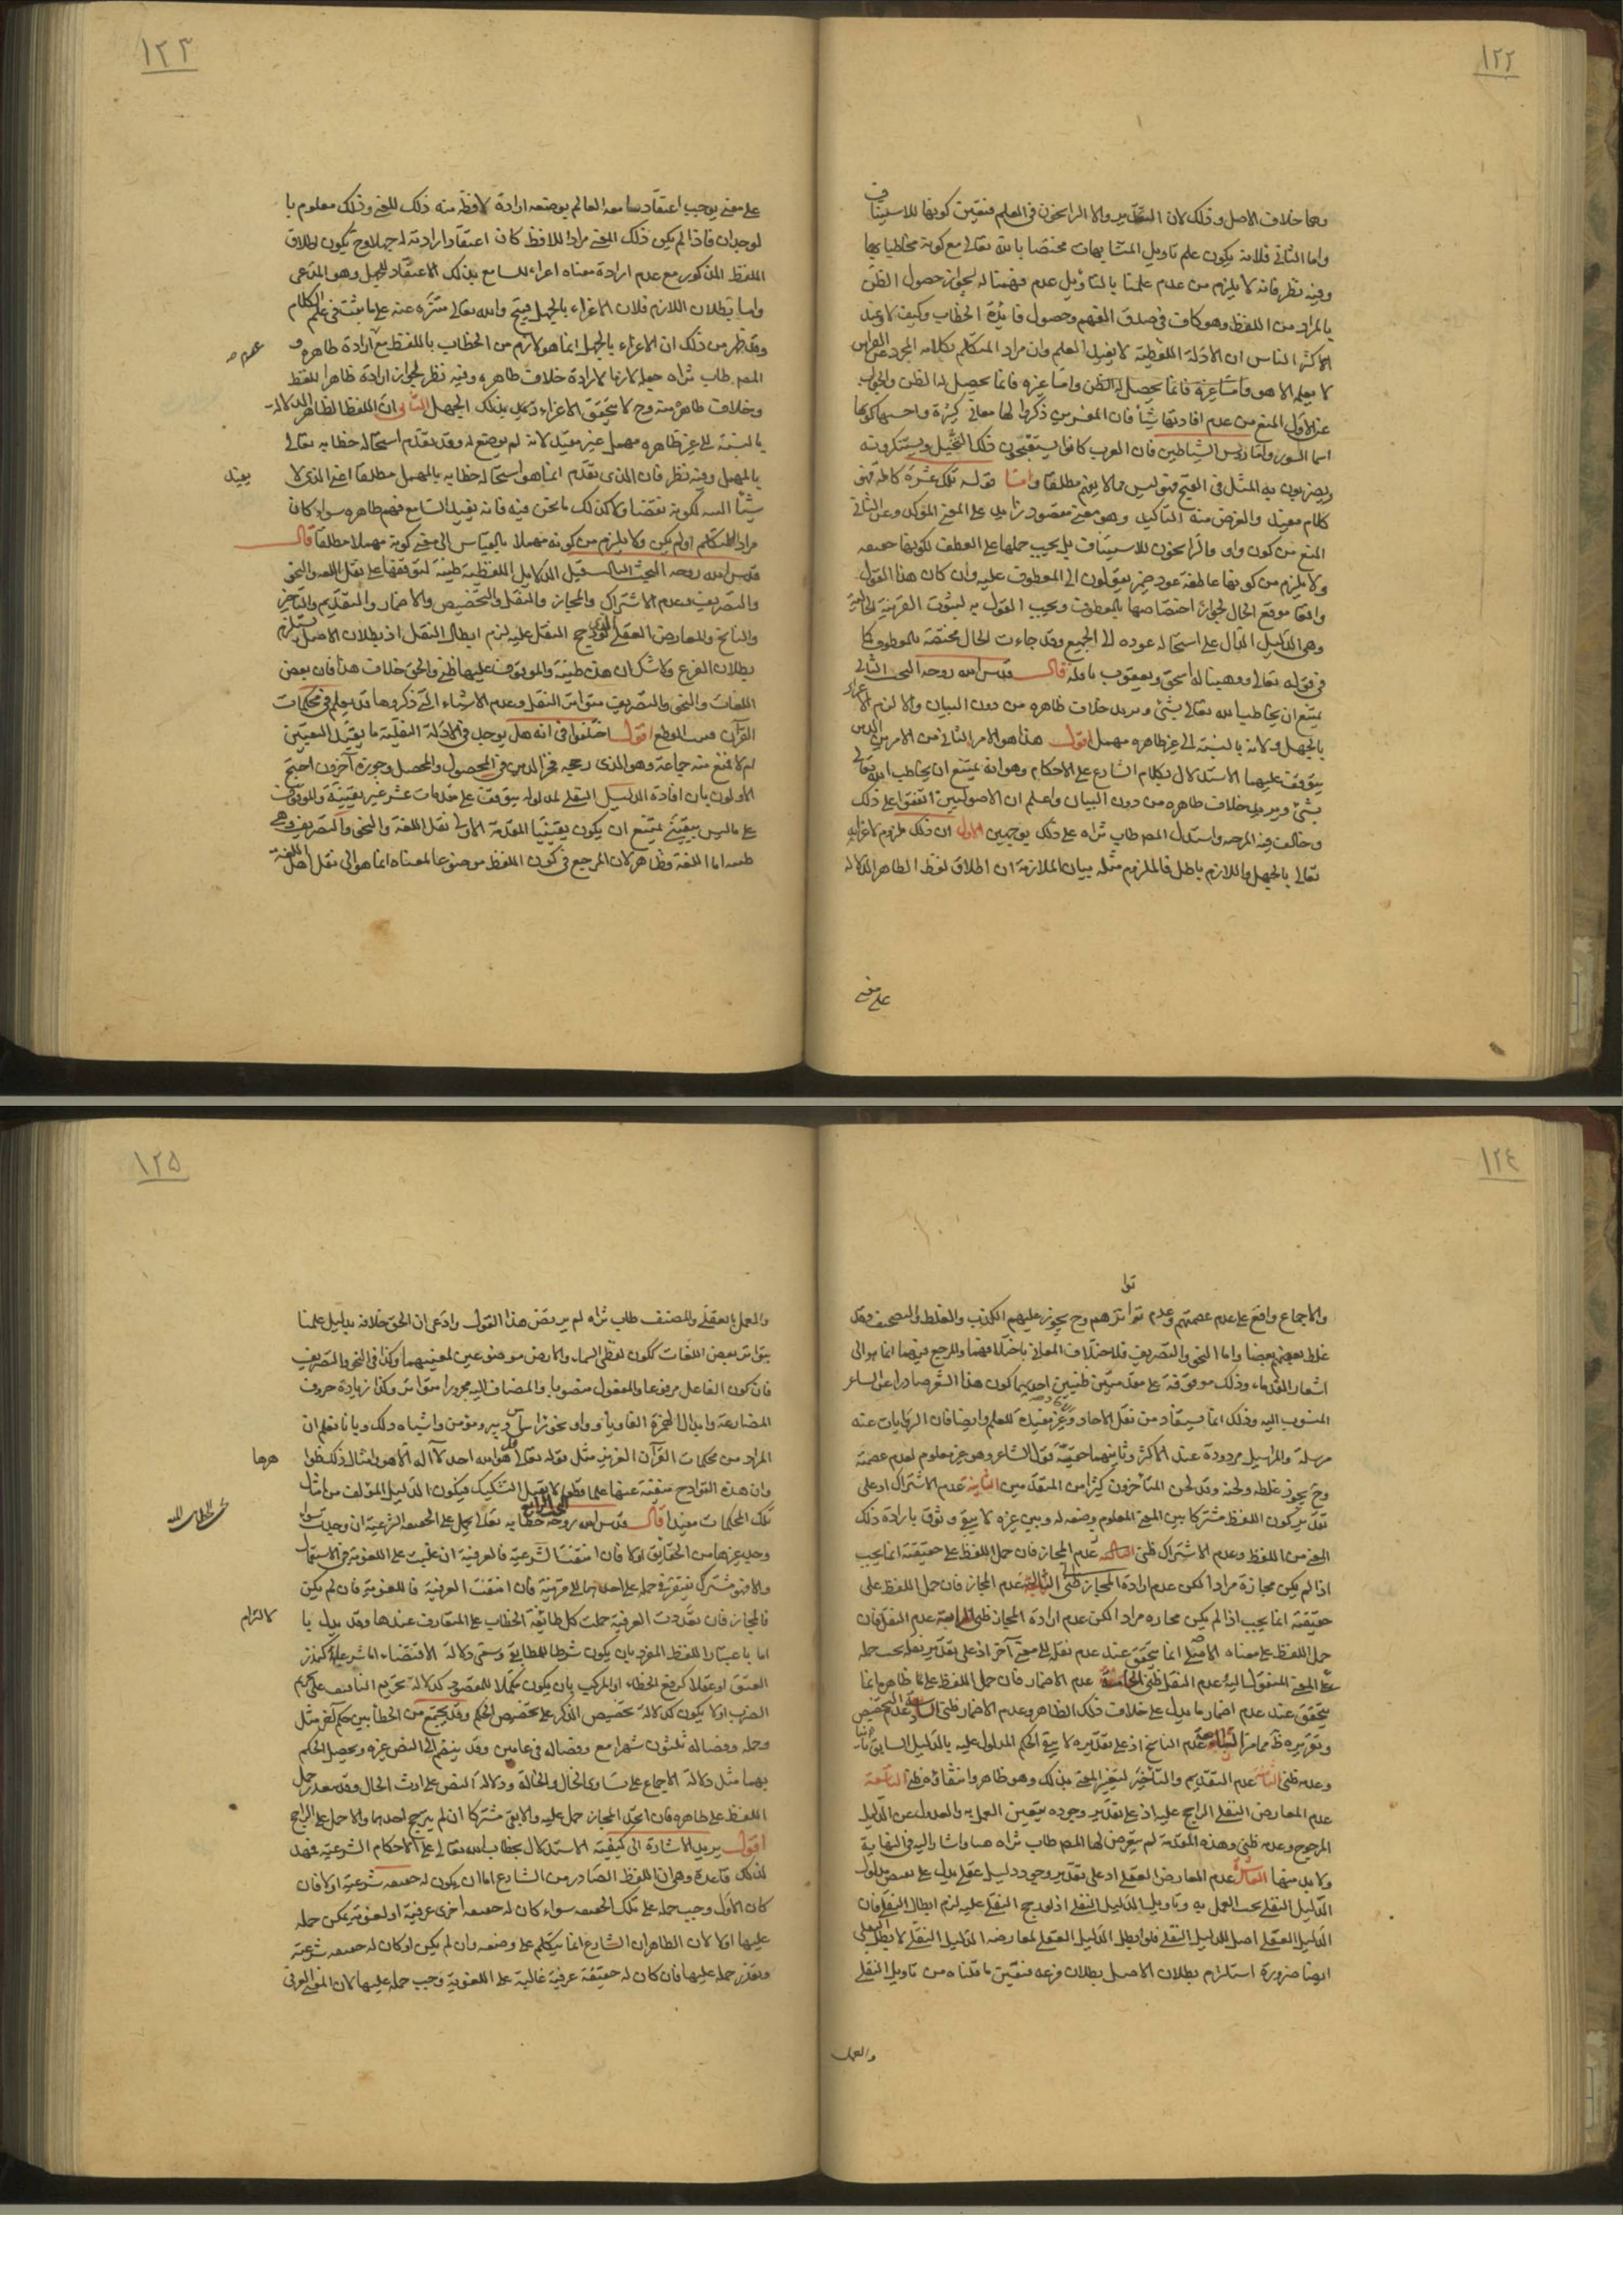 ١٢٢
وهما خلاف الاصل وذلك لان التقدير والا الراسخون فى العلم فتعين كونها للاستيناف
واما الثانى فلانه يكون علم تاويل المتشابهات مختصا بالله تعالى مع كونه مخاطبا بها
وفيه نظر فانه لا يلزم من عدم علمنا بالتاويل عدم فهمنا له لجواز حصول الظن
بالمراد من اللفظ وهو كاف فى صدق الفهم وحصول فائدة الخطاب وكيف لا وعند
اكثر الناس ان الادلة اللفظية لا يفيد العلم وان مراد المتكلم بكلامه المجرد عن القراين
لا يعلمه الا هو واما غيره فانما يحصل له الظن والجواب
عن الاول المنع من عدم افادتها شيئا فان المفسرين ذكروا لها معانى كثيرة واحسنها كونها
اسما السور واما رؤس الشياطين فان العرب كانوا يستقبحون ذلك التخيل ويستنكرونه
ويضربون به المثل فى القبح فهو ليس مما لا يفهم مطلقا واما قوله تلك عشرة كاملة فهو
كلام مفيد والغرض منه التاكيد وهو معنى مقصود زايد على المعنى المؤكد وعن الثانى
المنع من كون واو والراسخون للاستيناف بل يجب حملها على العطف لكونها حقيقه
ولا يلزم من كونها عاطفة عود ضمير يقولون الى المعطوف عليه وان كان هذا القول
واقعا موقع الحال لجواز اختصاصها بالمعطوف ويجب القول به لثبوت القرينة الحالية
وهى الدليل الدال على استحاله عوده الى الجميع وقد جاءت الحال مختصة بالمعطوف كما
فى قوله تعالى ووهبنا له اسحق ويعقوب نافلة قال قدس الله روحه البحث الثانى
يمتنع ان يخاطب الله تعالى بشئ ويريد خلاف ظاهره من دون البيان والا لزم الاغراء
بالجهل ولانه بالنسبة الى غير ظاهره مهمل اقول هذا هو الامر الثانى من الامرين الذين
يتوقف عليهما الاستدلال بكلام الشارع على الاحكام وهو انه يمتنع ان يخاطب الله تعالى
بشئ ويريد خلاف ظاهره من دون البيان واعلم ان الاصوليين اتفقوا على ذلك
وخالف فيه المرجه واستدل المصـ طاب ثراه على ذلك بوجهين الاول ان ذلك ملزوم لاغرائه
تعالى بالجهل واللازم باطل فالملزوم مثله بيان الملازمة ان اطلاق لفظ الظاهر الدلاله
على معنى
١٢٣
على معنى يوجب اعتقاد سامعه العالم بوضعه ارادة لافظه منه ذلك المعنى وذلك معلوم با
لوجدان فاذا لم يكن ذلك المعنى مراد اللافظ كان اعتقاد ارادته له جهلا وح يكون اطلاق
اللفظ المذكور مع عدم ارادة معناه اغراء للسامع بذلك الاعتقاد الجهل وهو المدعى
واما بطلان اللازم فلان الاغراء بالجهل قبيح والله تعالى منزه عنه على ما يثبت فى علم الكلام
وقد ظهر من ذلك ان الاغراء بالجهل انما هو لازم من الخطاب باللفظ مع ارادة ظاهره و
المصـ طاب ثراه جعله لازما لارادة خلاف ظاهره وفيه نظر لجواز ارادة ظاهر اللفظ
وخلاف ظاهره منه وح لا يتحقق الاغراء بذلك الجهل الثانى ان اللفظ الظاهر الدلالة
بالنسبة الى غير ظاهره مهمل غير مفيد لانه لم يوضع له وقد تقدم استحاله خطابه تعالى
بالمهمل وفيه نظر فان الذى تقدم انما هو استحاله خطابه بالمهمل مطلقا اعنى الذى لا يفيد
شيئا البته لكونه نقصا ولا كذلك ما نحن فيه فانه يفيد السامع فهم ظاهره سواء كان
مراد المتكلم او لم يكن ولا يلزم من كونه مهملا بالقياس الى معنى كونه مهملا مطلقا قال
قدس الله روحه البحث الثالث قيل الدلايل اللفظية ظنية لتوقفها على نقل اللغه والنحو
والتصريف وعدم الاشتراك والمجاز والنقل والتخصيص والاضمار والتقديم والتاخير
والناسخ والمعارض العقلى لترجيح النقل عليه لزم ابطال النقل اذ بطلان الاصل يستلزم
بطلان الفرع ولا شك ان هذه ظنية والموقوف عليها ظنى والحق خلاف هذا فان بعض
اللغات والنحو والتصريف متواتر النقل وعدم الاشياء التى ذكروها قد يعلم فى محكمات
القرآن فيفيد القطع اقول اختلفوا فى انه هل يوجد فى الادلة النقلية ما يفيد اليقين
ام لا فمنع منه جماعة وهو الذى رجحه فخر الدين فى المحصول والمحصل وجوزه آخرون احتج
الاولون بان افادة الدليل النقلى لمدلوله يتوقف على مقدمات عشر غير يقينية والموقوف
على ما ليس بيقينى يمتنع ان يكون يقينيا المقدمة الاولى نقل اللغة والنحو والتصريف وهى
ظنيه اما اللغة فظاهر لان المرجع فى كون اللفظ موضوعا لمعناه انما هو الى نقل اهل اللغة
١٢٤
والاجماع واقع على عدم عصمتهم وعدم تواترهم وح يجوز عليهم الكذب والغلط والتصحيف وقد
غلط بعضهم بعضا واما النحو والتصريف فلاختلاف المعانى باختلافهما والمرجع فيهما انما هو الى
اشعار القدماء وذلك موقوفة على مقدمتين ظنيتين احديهما كون هذا الشعر صادرا عن الشاعر
المنسوب اليه وذلك انما يستفاد من نقل الاحاد وغير مفيدة للعلم وايضا فان الروايات عنه
مرسلة والمراسيل مردودة عند الاكثر وثانيتهما حقية قول الشاعر وهو غير معلوم لعدم عصمته
وح يجوز غلطه ولحنه وقد لحن المتاخرون كثيرا من المتقدمين الثانية عدم الاشتراك اذ على
تقدير كون اللفظ مشتركا بين المعنى المعلوم وضعه له وبين غيره لا يبقى وثوق بارادة ذلك
المعنى من اللفظ وعدم الاشتراك ظنى الثالثة عدم المجاز فان حمل اللفظ على حقيقته انما يجب
اذا لم يكن مجازه مرادا لكن عدم ارادة المجاز ظنى الثالثة عدم المجاز فان حمل اللفظ على
حقيقته انما يجب اذا لم يكن مجازه مرادا لكن عدم ارادة المجاز ظنى الرابعة عدم النقل فان
حمل اللفظ على معناه الاصلى انما يتحقق عند عدم نقله الى معنى آخر اذ على تقدير نقله يجب حمله
على المعنى المنقول اليه وعدم النقل ظنى الخامسة عدم الاضمار فان حمل اللفظ على ما ظاهره انما
يتحقق عند عدم اضمار ما يدل على خلاف ذلك الظاهر وعدم الاضمار ظنى السادسة عدم التخصيص
وتقريره ظ مما مر السابعة عدم الناسخ اذ على تقديره لا يبقى الحكم المدلول عليه بالدليل السابق ثابتا
وعدمه ظنى الثامنة عدم التقديم والتاخير لتغير المعنى بذلك وهو ظاهر وانتفاؤه ظنى التاسعة
عدم المعارض النقلى الراجح عليه اذ على تقدير وجوده يتعين العمل به والعدول عن الدليل
المرجوح وعدمه ظنى وهذه المقدمة لم يتعرض لها المصـ طاب ثراه هنا واشار اليه فى النهاية
ولا بد منها العاشرة عدم المعارض العقلى اذ على تقدير وجود دليل عقلى يدل على نقيض مدلول
الدليل النقلى يجب العمل به وتاويل الدليل النقلى اذ لو رجح النقلى عليه لزم ابطال النقلى فان
الدليل العقلى اصل للدليل النقلى فلو ابطل الدليل العقلى لمعارضه الدليل النقلى لا بطل النقلى
ايضا ضرورة استلزام بطلان الاصل بطلان فرعه فتعين ما قلناه من تاويل النقلى
والعمل
١٢٥
والعمل بالعقلى والمصنف طاب ثراه لم يرتض هذا القول وادعى ان الحق خلافه بدليل علمنا
بتواتر بعض اللغات ككون لفظى السماء والارض موضوعين لمعنييهما وكذا فى النحو والتصريف
فان كون الفاعل مرفوعا والمفعول منصوبا والمضاف اليه مجرورا متواتر وكذا زيادة حروف
المضارعة وابدال الهمزة الفا وياء وواو نحو راس وبير ومومن واشباه ذلك وبانا نعلم ان
المراد من محكمات القرآن العزيز مثل قوله تعالى قل هو الله احد لا اله الا هو وامثال ذلك ظواهرها
وان هذه القوادح منفية عنها علما قطعيا لا يقبل التشكيك فيكون الدليل المؤلف من امثال
تلك المحكمات مفيدا قال قدس الله روحه البحث الرابع خطابه تعالى يحمل على الحقيقه الشرعية ان وجدت سواء
وجد غيرها من الحقايق او لا فان انتفت الشرعية فالعرفية ان غلبت على اللغوية فى الاستعمال
والا فهو مشترك يفتقر فى حمله على احدهما الى قرينة فان انتفت العرفية فاللغوية فان لم يكن
فالمجاز فان تعددت العرفية حملت كل طائفة الخطاب على المتعارف عندها وقد يدل بالالتزام
اما باعتبار اللفظ المفرد بان يكون شرطا للمطابق وسمى دلالة الاقتضاء اما شرعية كنذر
العتق او عقلا كرفع الخطاء او المركب بان يكون مكملا للمقصود كدلالة تحريم التافيف على تحريم
الضرب او لا يكون كدلالة تخصيص الذكر على تخصيص الحكم وقد يجتمع من الخطابين حكم آخر مثل
وحمله وفصاله ثلثون شهرا مع وفصاله فى عامين وقد ينضم الى النص غيره ويحصل الحكم
بهما مثل دلالة الاجماع على تساوى الخال والخالة ودلالة النص على ارث الخال وقد يتعذر حمل
اللفظ على ظاهره فان اتحد المجاز حمل عليه والا بقى مشتركا ان لم يترجح احدهما والا حمل على الراجح
اقول يريد الاشارة الى كيفية الاستدلال بخطاب الله تعالى على الاحكام الشرعية فمهد
لذلك قاعدة وهى ان اللفظ الصادر من الشارع اما ان يكون له حقيقه شرعية او لا فان
كان الاول وجب حمله على تلك الحقيقه سواء كان له حقيقه اخرى عرفية او لغوية يمكن حمله
عليها او لا لان الظاهر ان الشارع انما يتكلم على وضعه وان لم يكن او كان له حقيقه شرعية
وتعذر حمله عليها فان كان له حقيقة عرفية غالبة على اللغوية وجب حمله عليها لان المعنى العرفى